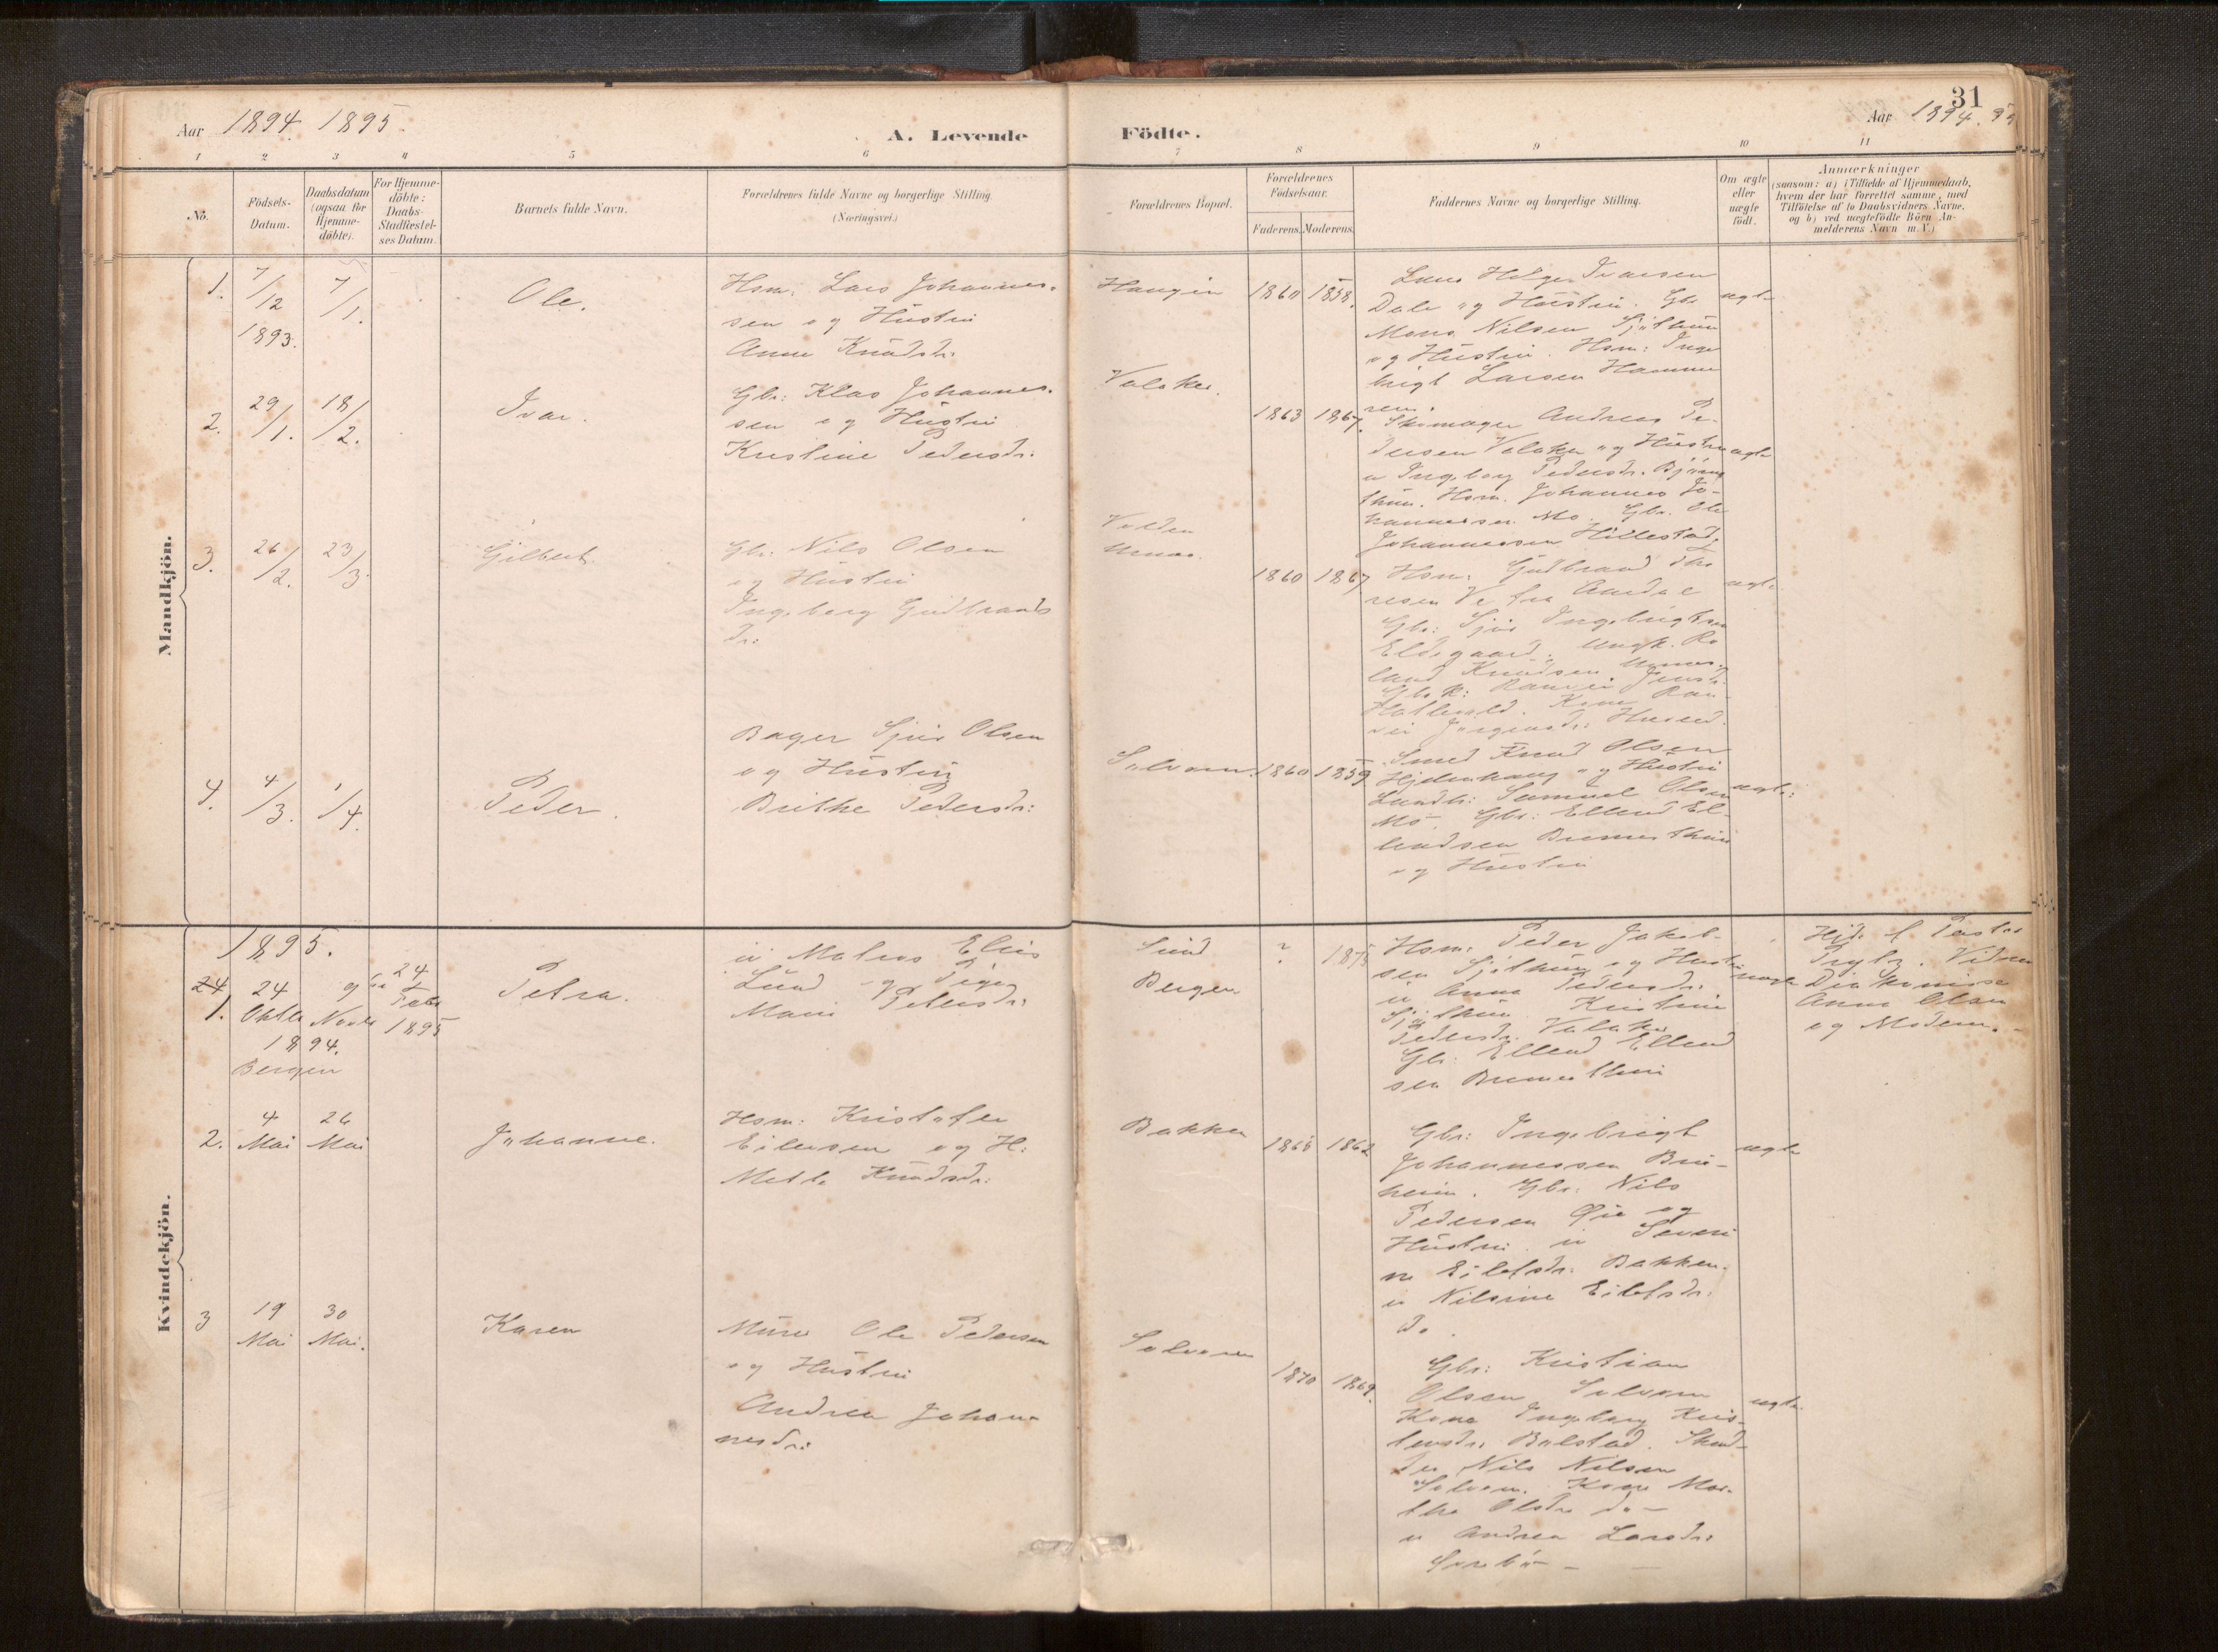 31
Aar 1894 1895.
A. Levende
Födte.
Aar 1894. 95
1 2 3 4 5 6 7 8 9 10 11
No.
Födsels-
Datum.
Daabsdatum
(ogsaa for
Hjemme-
döbte).
For Hjemme-
döbte:
Daabs-
Stadfæstel-
ses Datum.
Barnets fulde Navn.
Forældrenes fulde Navne og borgerlige Stilling.
(Næringsvei.)
Forældrenes Bopæl.
Forældrenes
Födselsaar.
Faderens. Moderens.
Faddernes Navne og borgerlige Stilling.
Om ægte
eller
uægte
födt.
Anmærkninger
(saasom: a) i Tilfælde af Hjemmedaab,
hvem der har forrettet samme, med
Tilföielse af to Daabsvidners Navne.
og b) ved uægtefödte Börn An-
melderens Navn m. V.)
Mandkjön.
1.
7/12
1893.
7/1.
Ole.
Hsm: Lars Johannes-
sen og Hustru
Anne Knudsdr:
Haugen
1860 1858.
Lars Helges Ivarsen
Dale og Hustru. Gbr
Mons Nilsen Sjøthun
og Hustru. Hsm: Inge
brigt Larsen Hamme
ren.
ægte
2.
29/1.
18/2.
Ivar.
Gbr: Klas Johannes-
sen og Hustru
Kristine Pedersdr.
Valaker.
1863 1867.
Skomager Andreas Pe-
dersen Valaker og Hustru
u Ingeborg Pedersdr. Bjørne
thun. Hsm. Johannes Jo-
hannessen Mo. Gbr. Ole
Johannessen Hillestad.
ægte
3.
26/2.
23/3.
Gilbert
Gbr: Nils Olsen
og Hustru
Ingeborg Gudbrands
dr:
Volden
Urnes.
1860 1867
Hsm: Gudbrand Tho
resen Ve fra Aardal
Gbr: Sjur Ingebrigtsen
Eldegaard. Ungk. Ro
land Knudsen Urnes.
Gbk: Ranvei Jensdr.
Hatlevold. Kone Ran-
vei Jørgensdr:
ægte
4.
4/3.
1/4.
Peder.
Bager Sjur Olsen
og Hustru
Brithe Pedersdr:
Solvorn.
1860 1859
Smed Knud Olsen
Hjelmhaug og Hustru
Landh: Samuel Olsen
Mo. Gbr: Ellend El-
lendsen Bremerthun
og Hustru
ægte:
Kvindekjön.
1895.
24
1.
24
Oktbr
1894.
Bergen
9de
Novbr
24
Febr
1895
Petra.
u Matros Elias
Lund og Pige
Marie Petersdr:
Lund
Bergen
? 1875
Hsm: Peder Jakob-
sen Sjøthun og Hustru
u Anna Pedersdr:
Sjøthun Kristine
Pedersdr. Valaker
Gbr: Ellend Ellend
sen Bremerthun
uægte
Hjd. f. Pastor
Prytz. Vidner
Diakonisse
Anna Olsen
og Moderen.
2.
4
Mai
26
Mai
Johanne.
Hsm: Kristofer
Eilevsen og H:
Mette Knudsdr:
Bakken
1865 1862
Gbr: Ingebrigt
Johannessen Bru-
heim. Gbr: Nils
Pedersen Øie og
Hustru. u Severi
ne Eilefsdr: Bakken.
u Nilsine Eilefsdr:
do.
ægte
3
19
Mai
30
Mai.
Karen
Murer Ole Pedersen
og Hustru
Andrea Johan-
nesdr:
Solvorn
1870 1869.
Gbr: Kristian
Olsen Solvorn
Kone Ingeborg Kris-
tensdr: Bolstad. Skræd-
der Nils Nilsen
Solvorn. Kone Mar-
tha Olsdr do —
u Andrea Larsdr:
ægte.